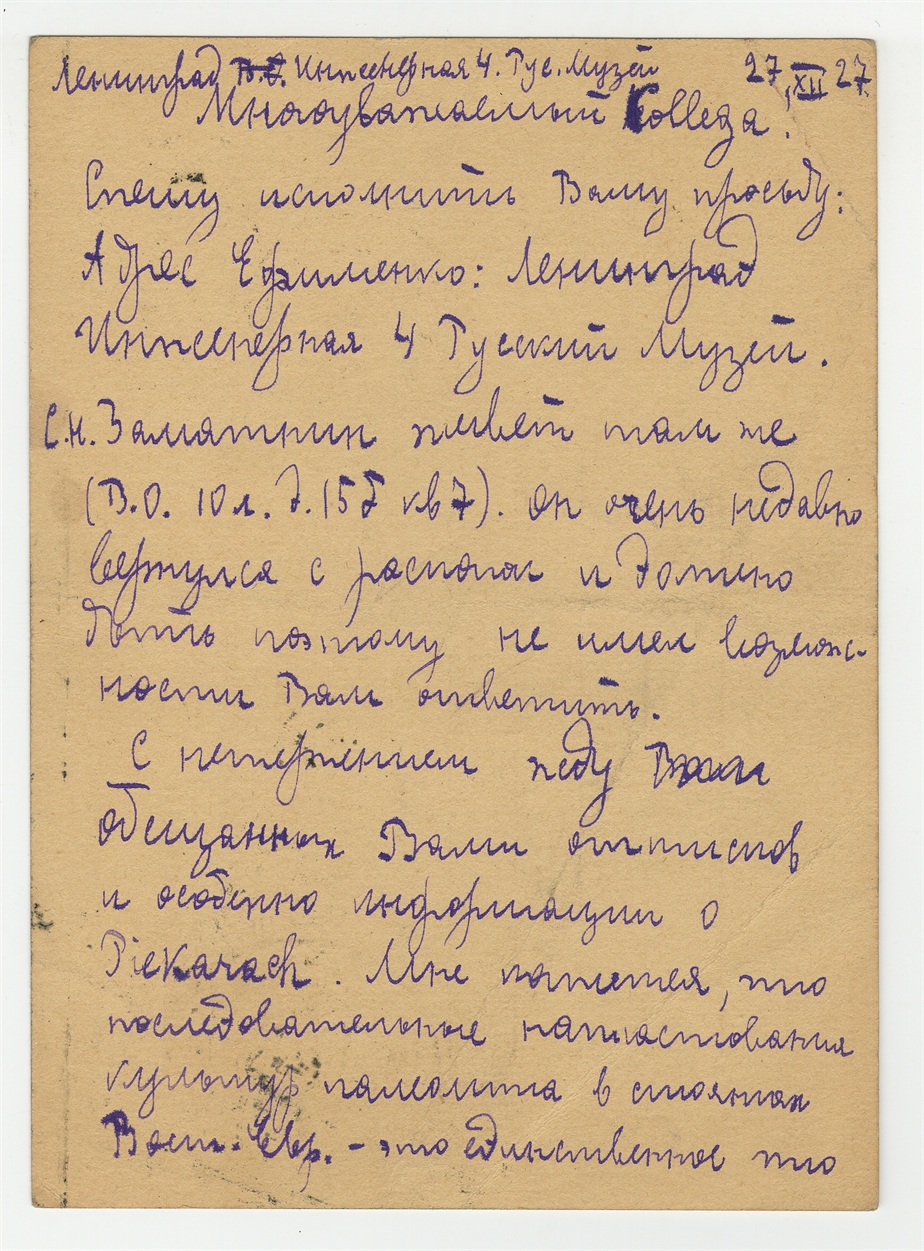 Ленинград В.О. Инженерная 4. Рус. Музей 27, XII 27
Многоуважаемый Collega.
Спешу исполнить Вашу просьбу:
Адрес Ефименко: Ленинград
Инженерная 4 Русский Музей.
С.Н. Замятнин живет там же
(В.О. 10 л. д. 15б кв 7). Он очень недавно
вернулся с раскопок и должно
быть поэтому не имел возмож-
ности Вам ответить.
С нетерпением жду
обещанных Вами оттисков
и особенно информации о
Piekarach. Мне кажется, что
последовательные напластования
культур палеолита в стоянках
Вост. Евр. - это единственное что